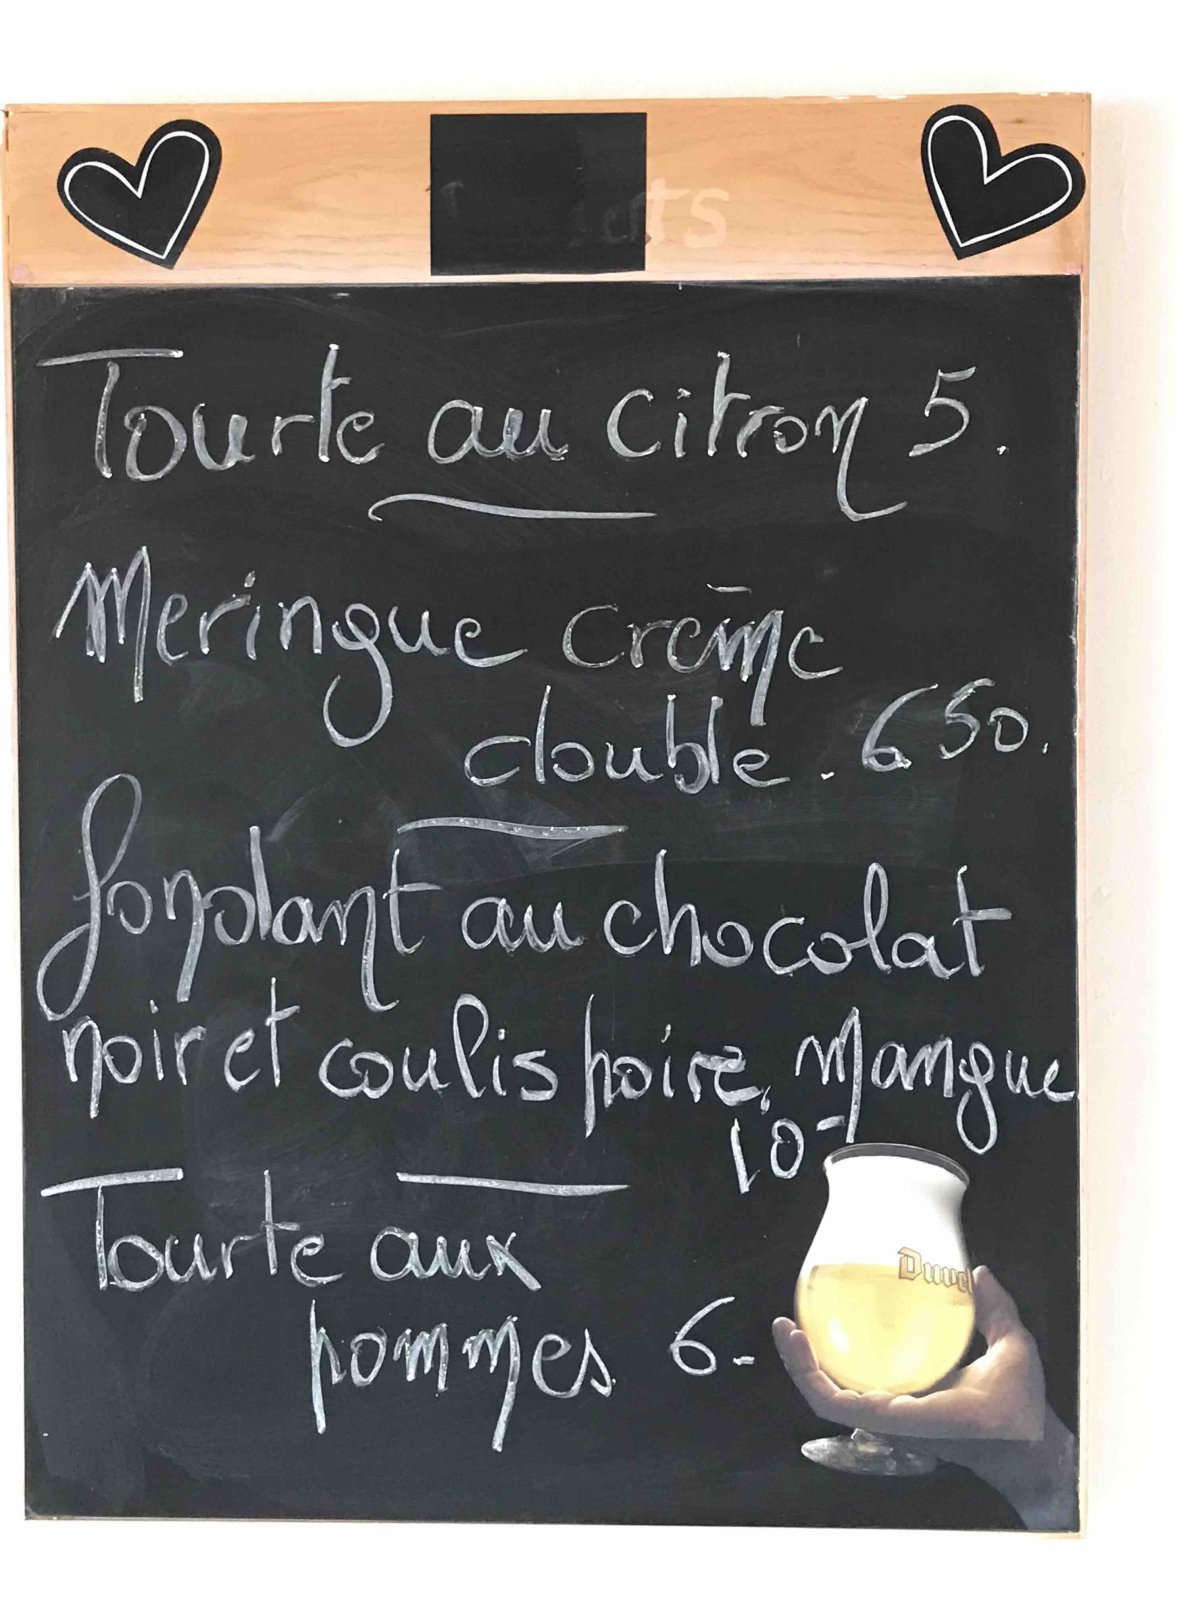 Tourte au citron 5.
Meringue crème
double. 6 50.
fondant au chocolat
noir et coulis poire, mangue
10-
Tourte aux
pommes 6-
Duvel